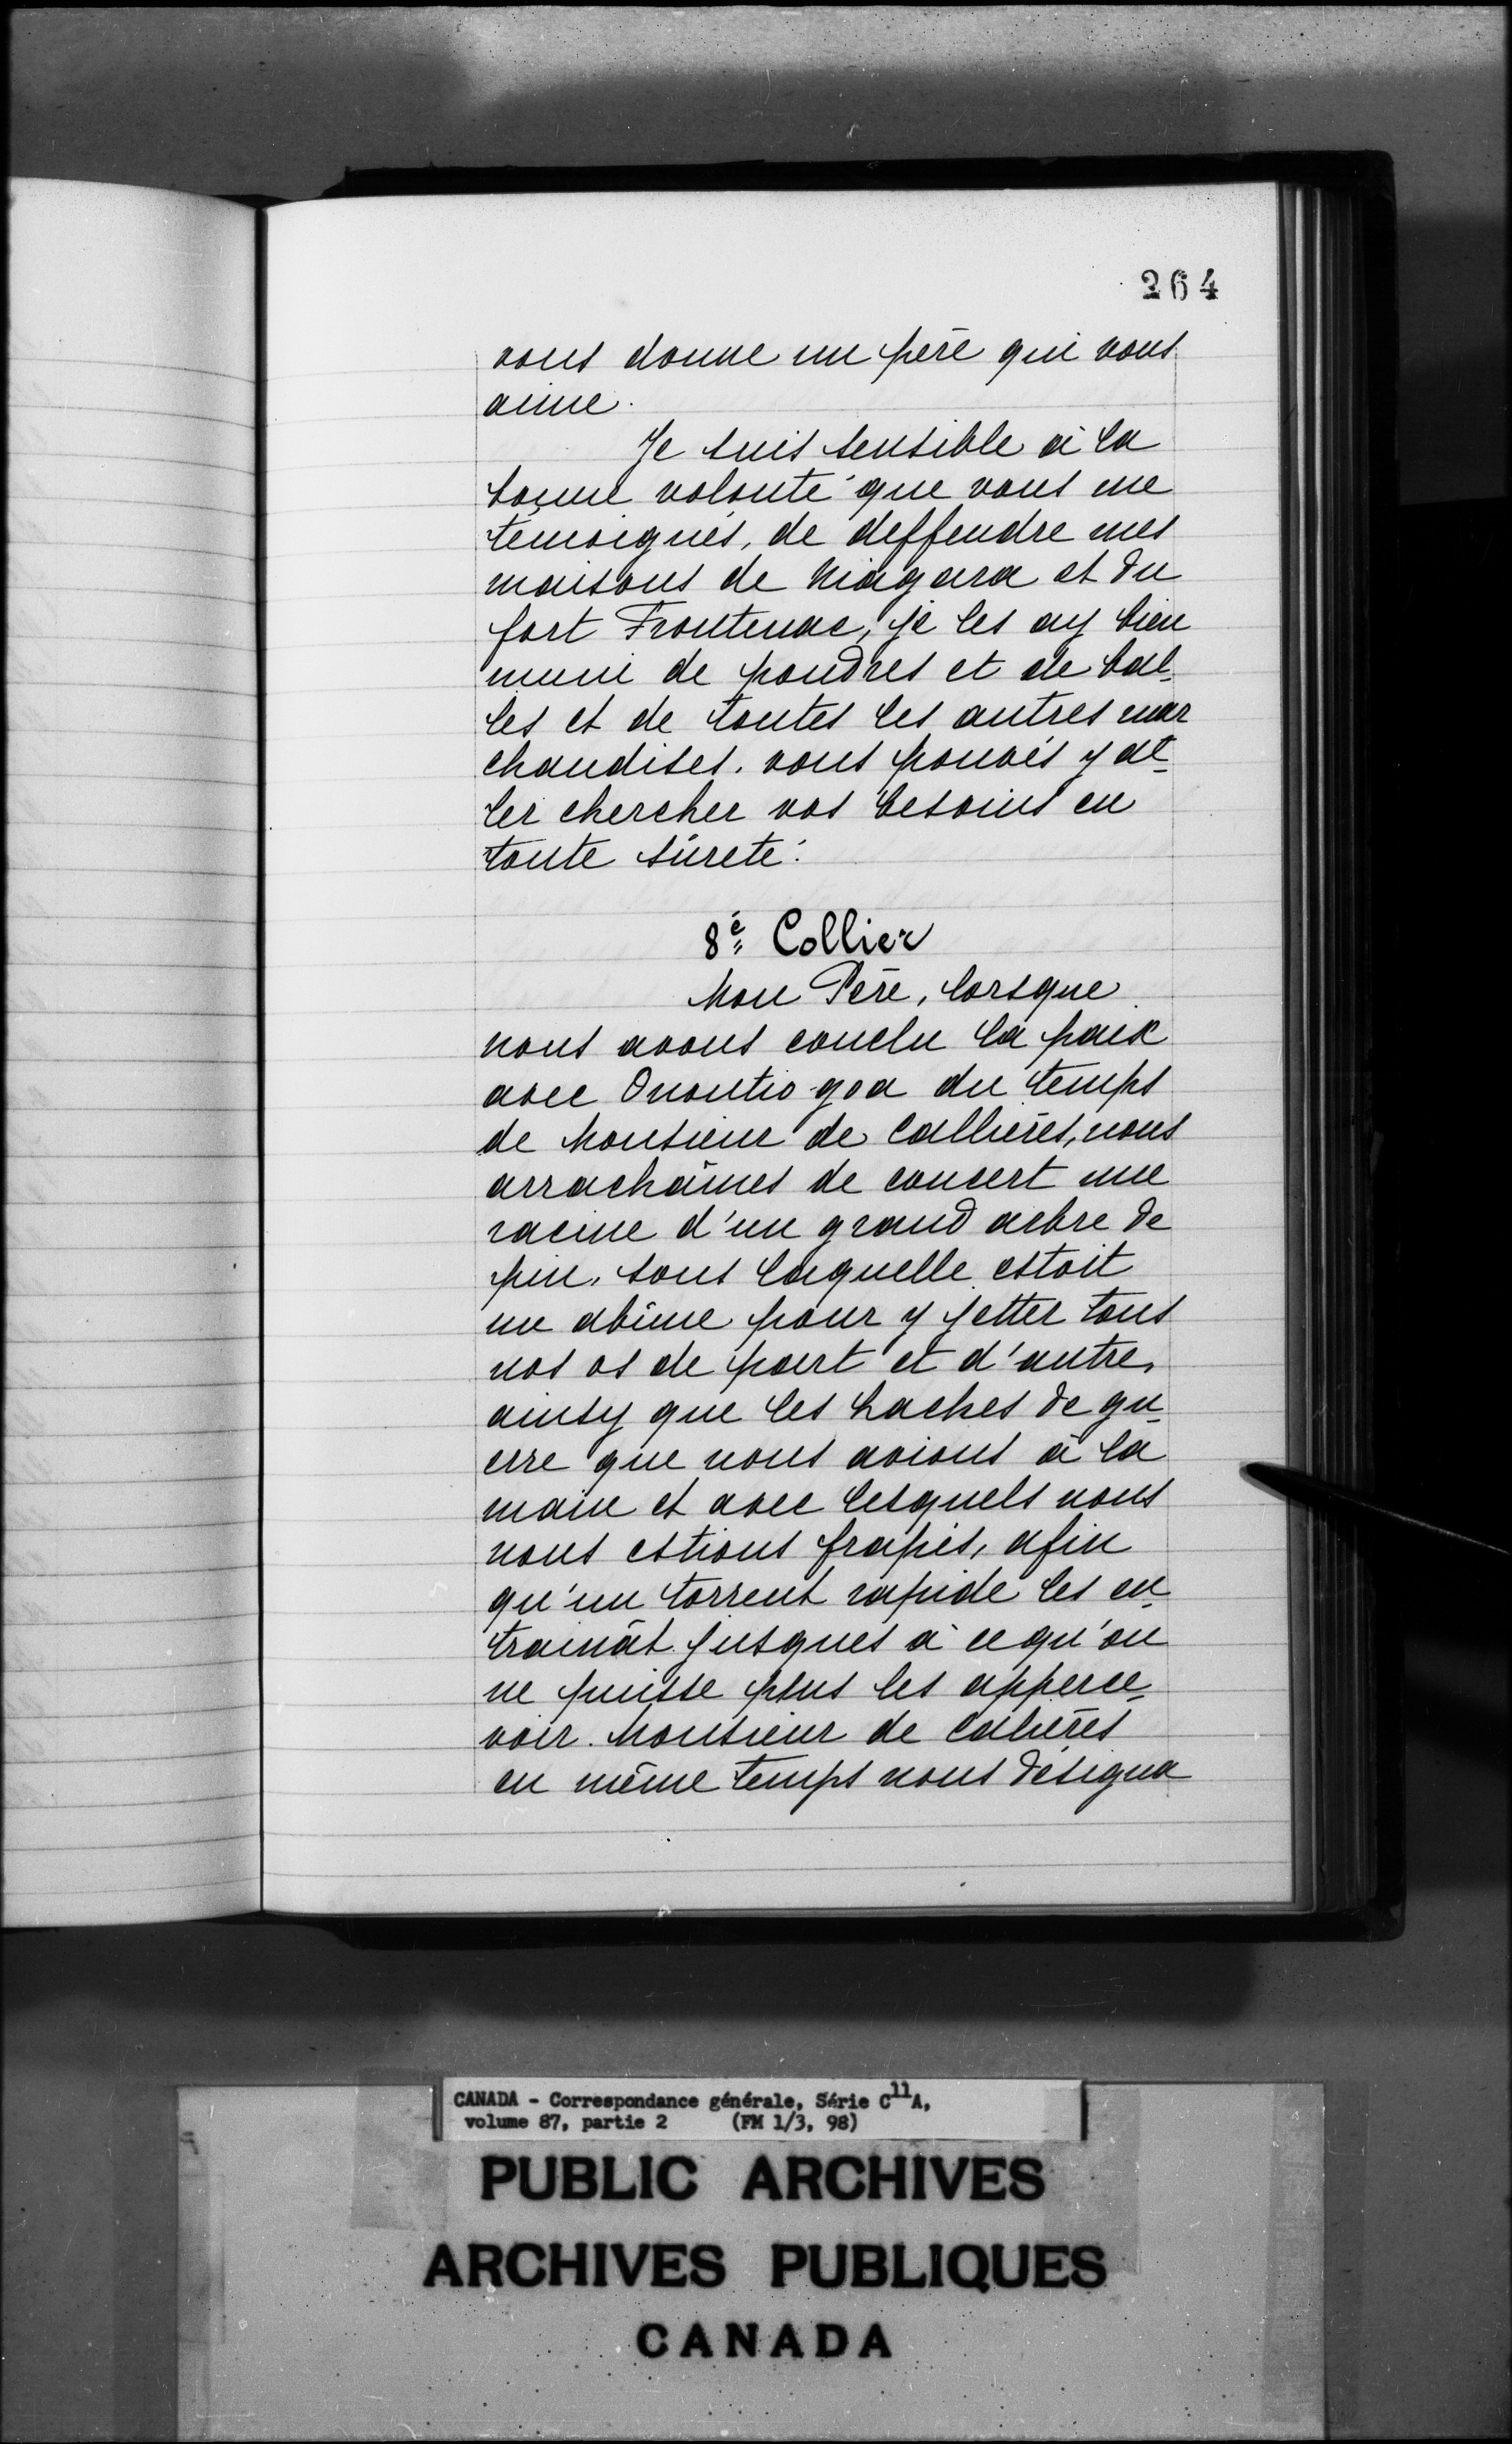 264
vous donne un père qui vous
aime.
Je suis sensible à la
bonne volonté que vous me
témoignés, de deffendre mes
maisons de Niagara et du
fort Frontenac, je les ay bien
muni de poudres et de bal-
les et de toutes les autres mar
chandises. vous pouvés y al-
ler chercher vos besoins en
toute sûreté.
8e Collier
Mon Père, lorsque
nous avons conclu la paix
avec Onontio-goa du temps
de Monsieur de Callières, nous
arrachâmes de concert une
racine d'un grand arbre de
pin, sous laquelle estoit
un abîme pour y jetter tous
nos os de part et d'autre,
ainsy que les haches de gu-
erre que nous avions à la
main et avec lesquels nous
nous estions frapés, afin
qu'un torrent rapide les en-
trainât jusques à ce qu'on
ne puisse plus les apperce-
voir. Monsieur de Calières
en même temps nous désigna
CANADA - Correspondance générale, Série C11A,
volume 87, partie 2 (FM 1/3, 98)
PUBLIC ARCHIVES
ARCHIVES PUBLIQUES
CANADA